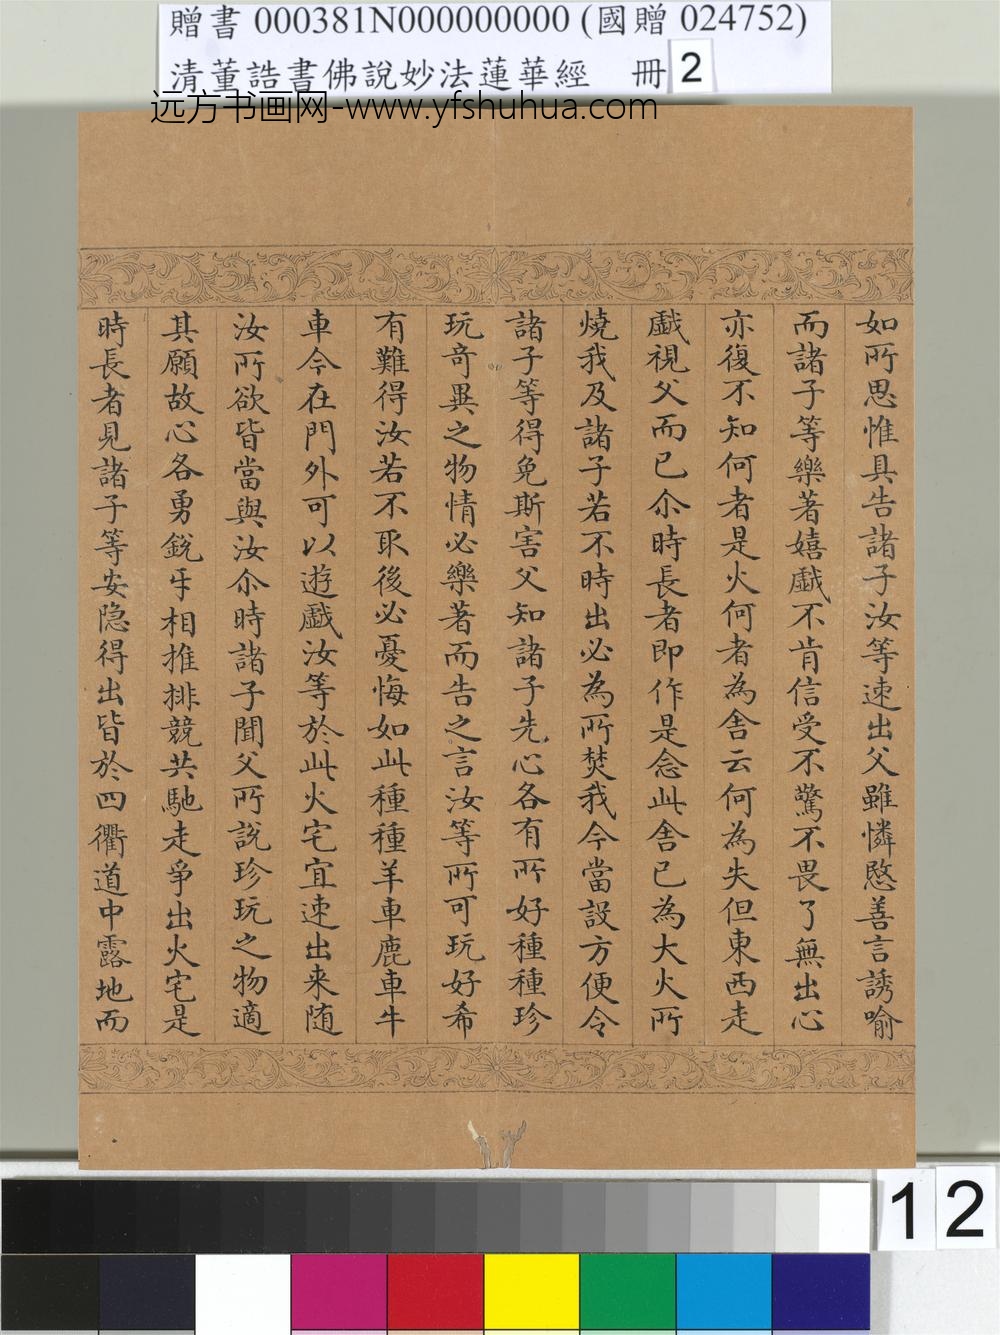 贈書 000381N000000000 (國贈 024752)
清董誥書佛說妙法蓮華經 冊 2
远方书画网-www.yfshuhua.com
如所思惟具告諸子汝等速出父雖憐愍善言誘喻
而諸子等樂著嬉戲不肯信受不驚不畏了無出心
亦復不知何者是火何者為舍云何為失但東西走
戲視父而已尒時長者即作是念此舍已為大火所
燒我及諸子若不時出必為所焚我今當設方便令
諸子等得免斯害父知諸子先心各有所好種種珍
玩奇異之物情必樂著而告之言汝等所可玩好希
有難得汝若不取後必憂悔如此種種羊車鹿車牛
車今在門外可以遊戲汝等於此火宅宜速出来随
汝所欲皆當與汝尒時諸子聞父所說珍玩之物適
其願故心各勇銳㸦相推排競共馳走爭出火宅是
時長者見諸子等安隐得出皆於四衢道中露地而
12